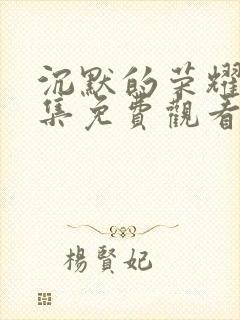 沉默的荣耀
集免費觀看
楊賢妃